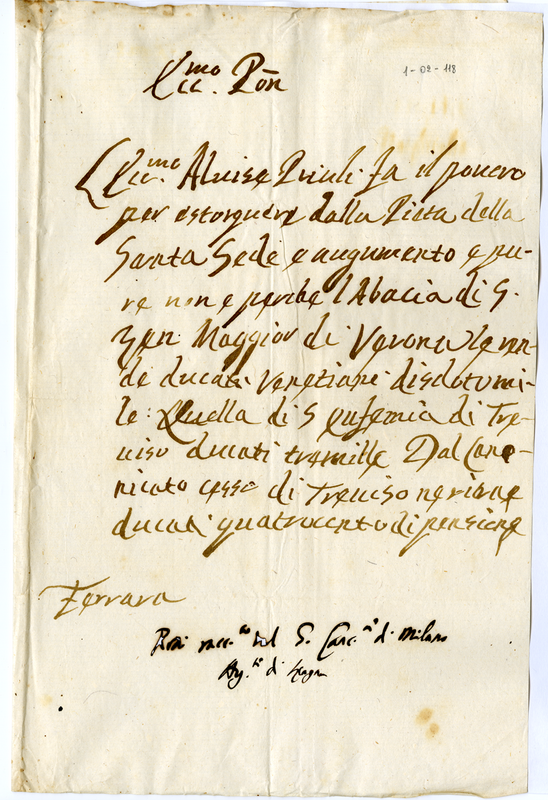 1-02-118
Ecc.mo P̃on
L'Ecc.mo Aluise Priuli fa il pouero
per estorquere dalla Pieta della
Santa Sede e augumento e pu-
re non e perche l'Abacia di S.
Zen Maggior di Verona le ren-
de ducati Venetiani disdotomi-
le: Quella di S eufemia di Tre-
uiso ducati tremille Dal Cano-
nicato cesso di Treuiso ne riceue
ducati quatrocento di pensione
Ferrara
S. Canc.ro di Milano
di Spagna